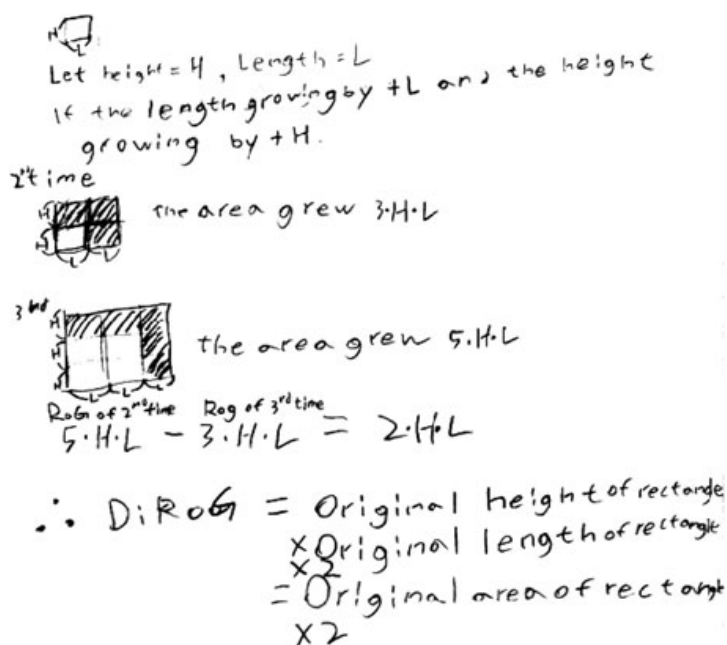 H
L
Let height = H, Length = L
If the length growing by +L and the height
growing by +H.
2nd time
H
H
L L
the area grew 3·H·L
3rd
H
H
H
L L L
the area grew 5·H·L
RoG of 2nd time Rog of 3rd time
5·H·L - 3·H·L = 2·H·L
∴ DiRoG = Original height of rectangle
×Original length of rectangle
×2
= Original area of rectangle
×2